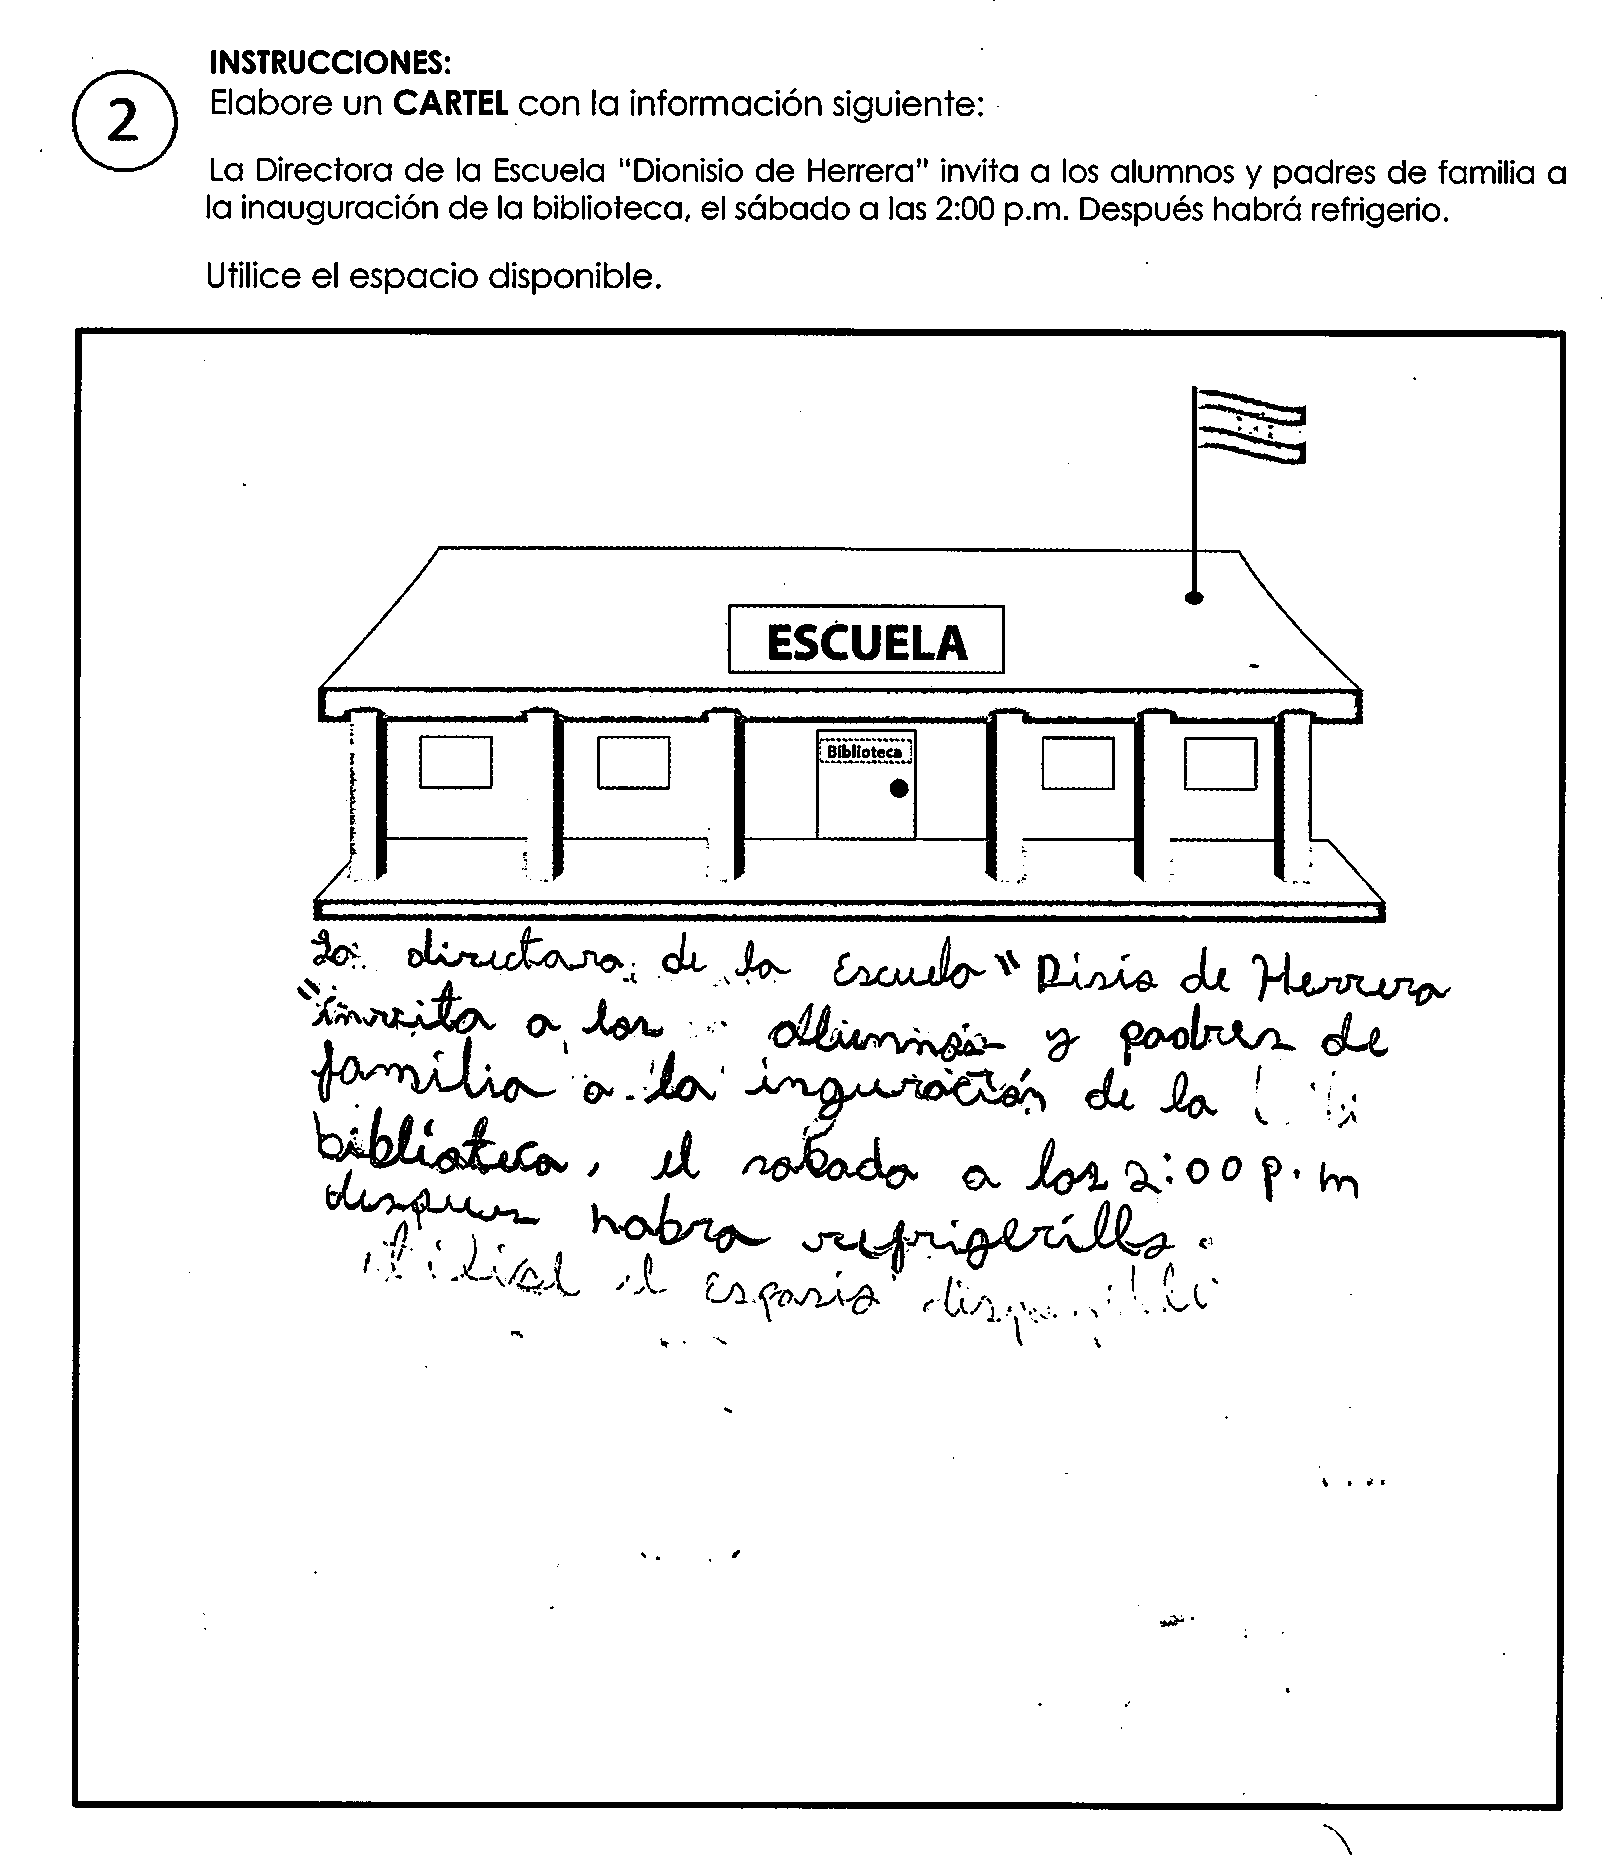 INSTRUCCIONES:
2
Elabore un CARTEL con la información siguiente:
La Directora de la Escuela "Dionisio de Herrera" invita a los alumnos y padres de familia a
la inauguración de la biblioteca, el sábado a las 2:00 p.m. Después habrá refrigerio.
Utilice el espacio disponible.
ESCUELA
Biblioteca
La directora de la Escuela " Disio de Herrera
"invita a los alumnos y padres de
familia a la inguración de la
biblioteca, el sabado a las 2:00 p.m
despues habra refrigerillo.
el espasio